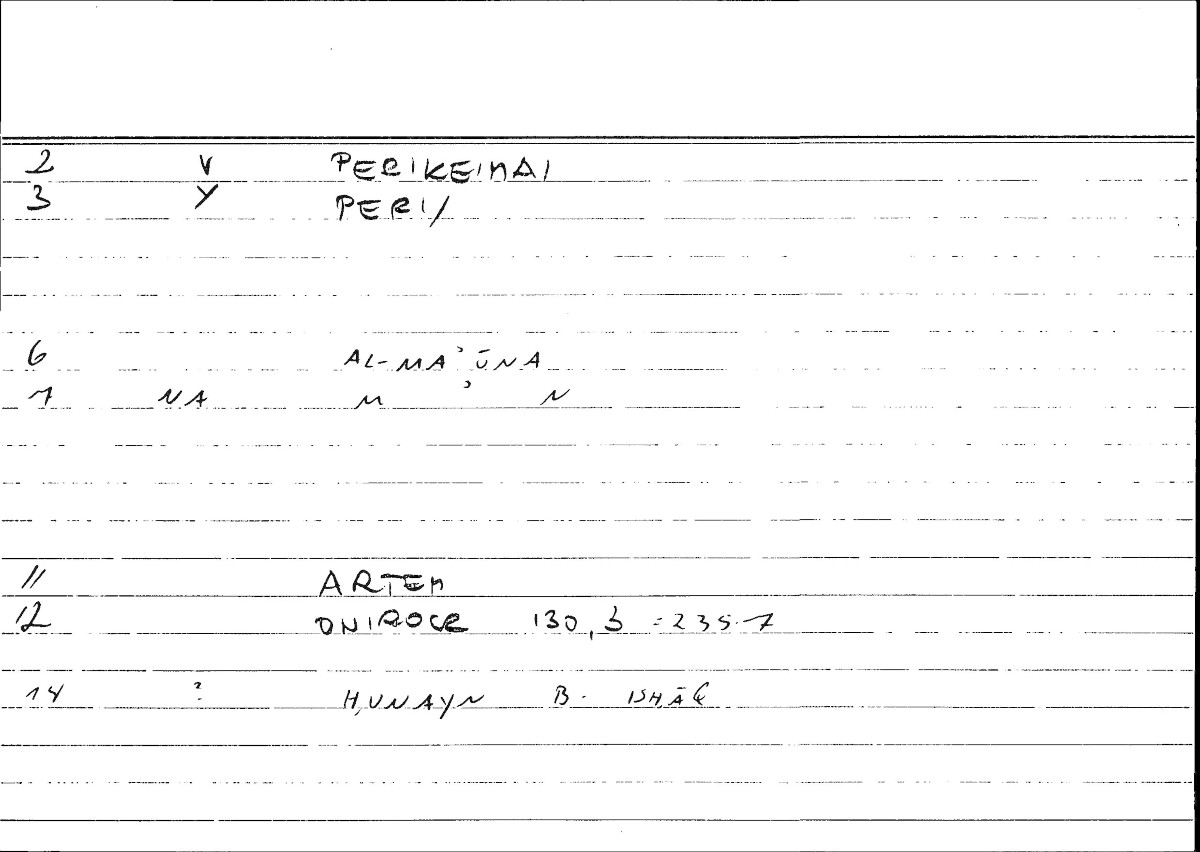 2 V PERIKEINAI
3 Y PERI/
6 AL-MAʾŪNA
7 NA M ʾ N
11 ARTEM
12 ONIROCR 130,3 =235.7
14 ? ḤUNAYN B. ISḤĀQ